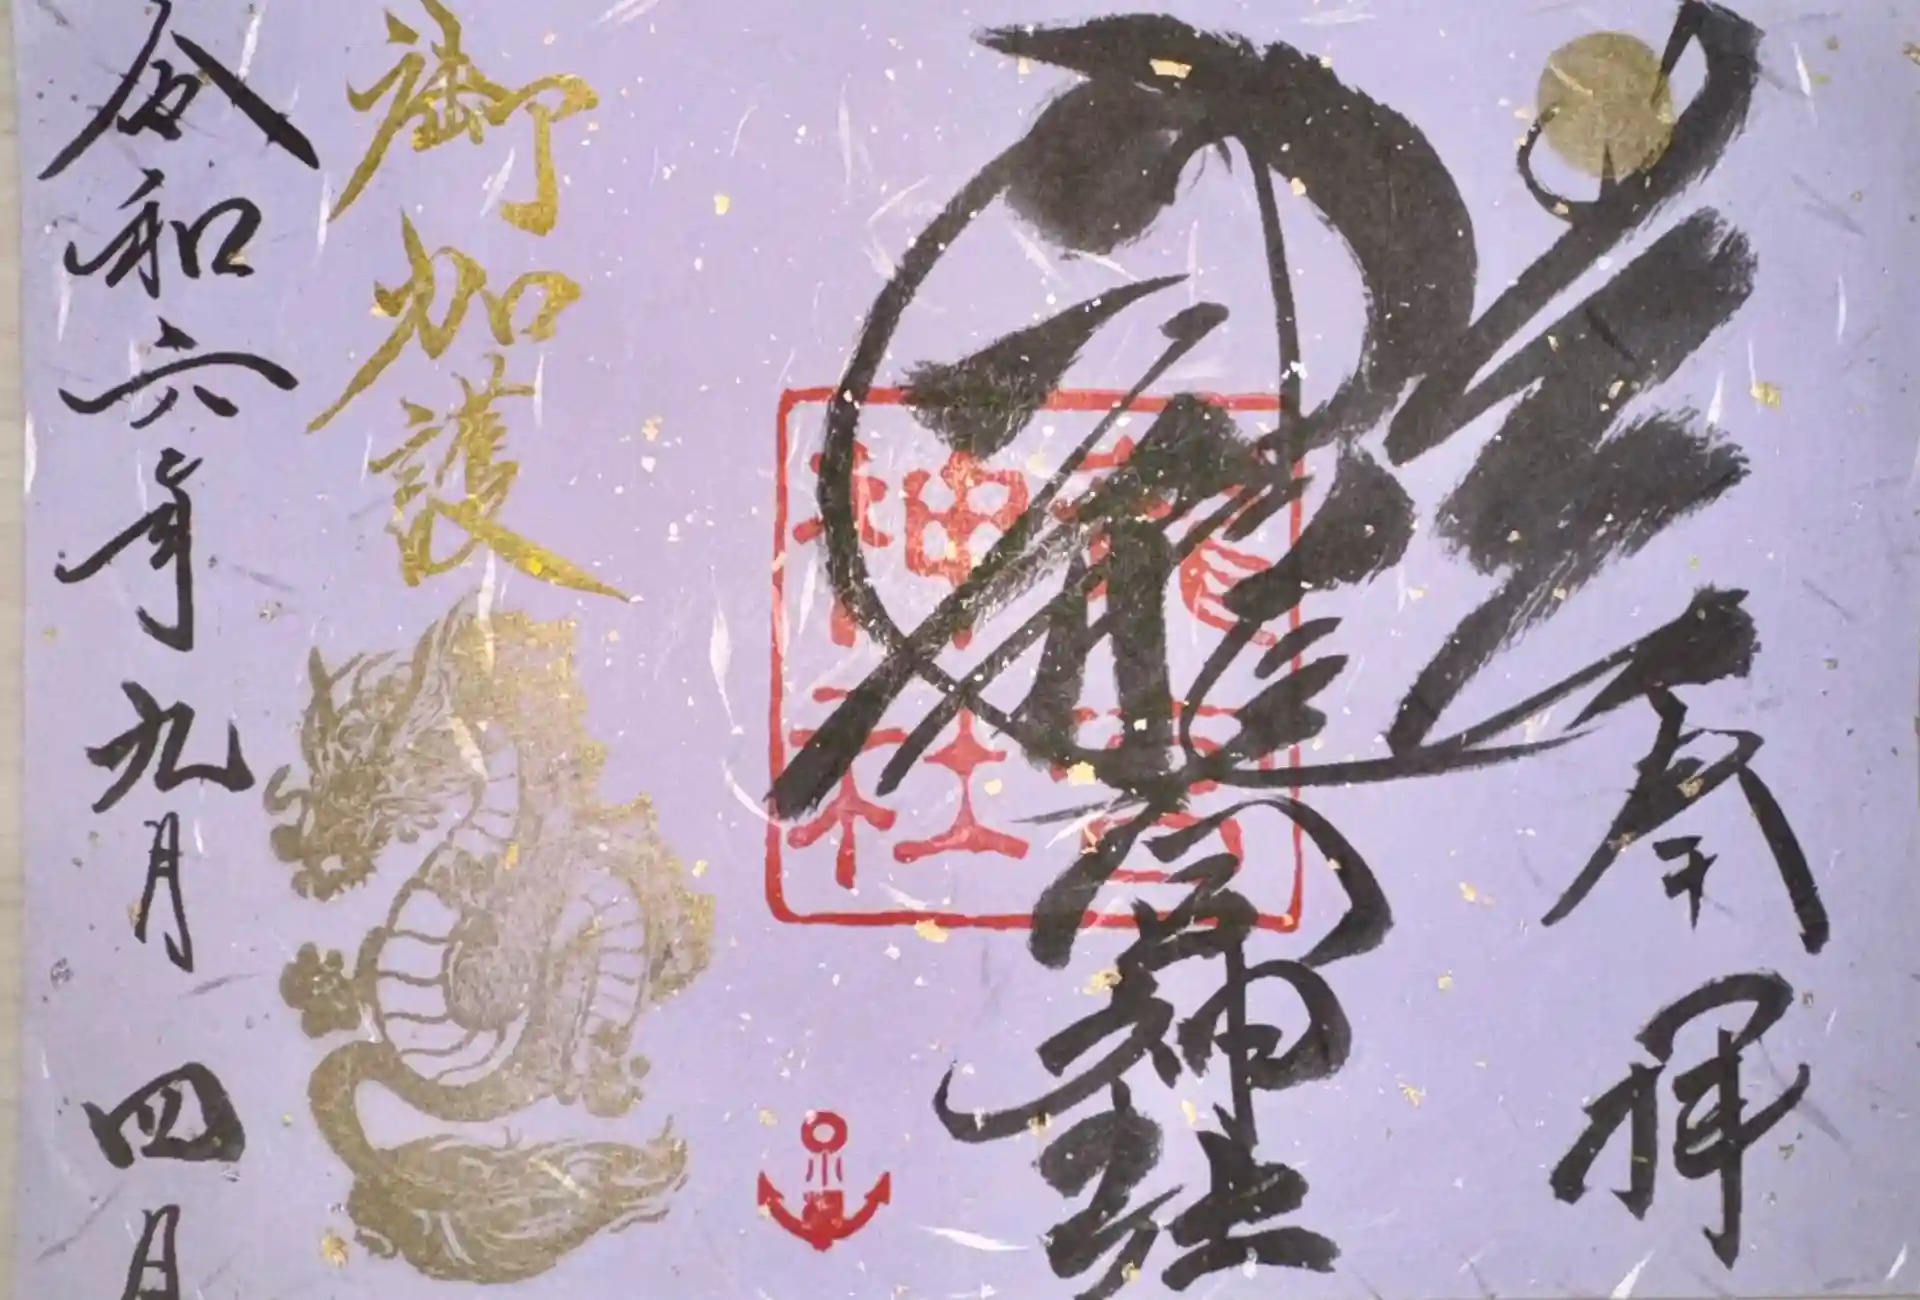 奉拝
龍宮神社
龍宮
神社
御加護
令和六年九月四日